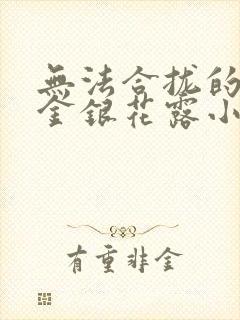 無法合拢的
金銀花露小
有重非金